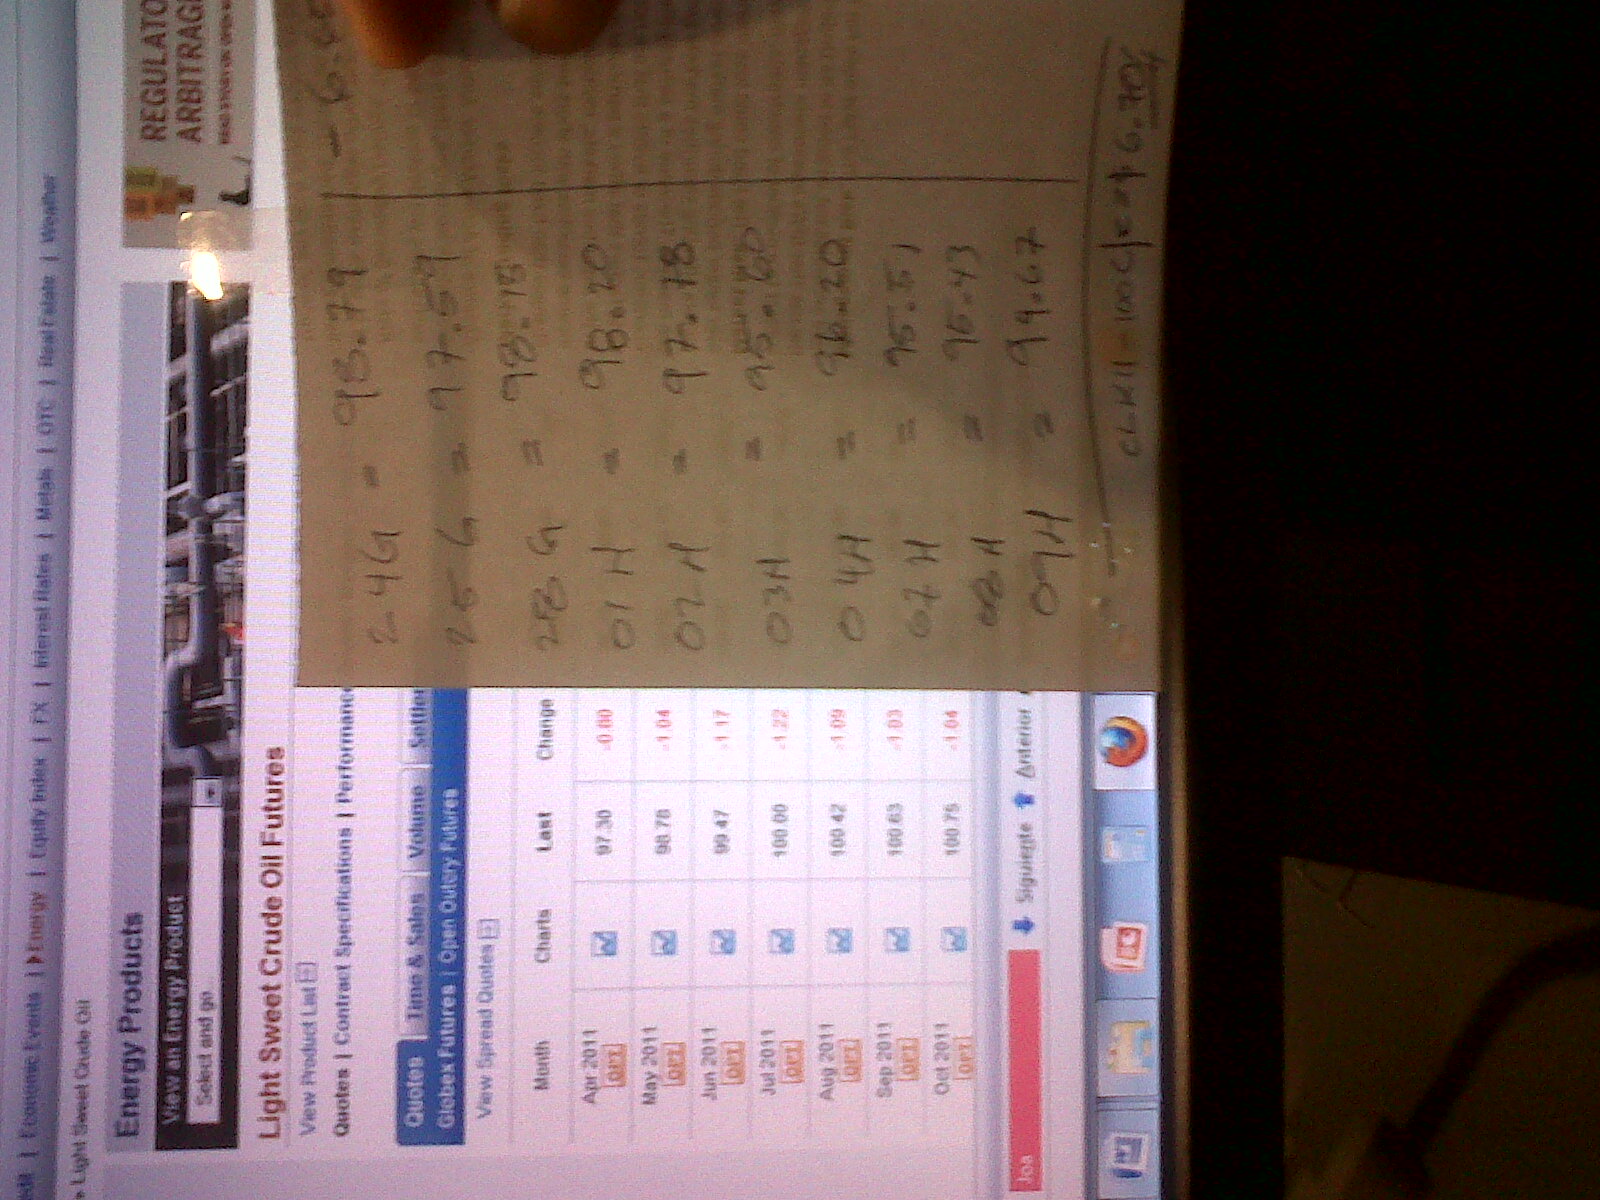 Economic Events | Energy | Equity Index | FX | Interest Rates | Metals | OTC | Real Estate | Weather
Light Sweet Crude Oil
Energy Products
View an Energy Product
Select and go
REGULATO
ARBITRAG
Light Sweet Crude Oil Futures
View Product List
Quotes | Contract Specifications | Performance
Quotes Time & Sales Volume Settle
Globex Futures | Open Outcry Futures
View Spread Quotes
Month Charts Last Change
Apr 2011 97.30 -0.80
OPT
May 2011 98.78 -1.04
OPT
Jun 2011 99.47 -1.17
OPT
Jul 2011 100.00 -1.22
OPT
Aug 2011 100.42 -1.09
OPT
Sep 2011 100.63 -1.03
OPT
Oct 2011 100.75 -1.04
OPT
Joa Siguiente Anterior
24G = 98.79
25G = 97.59
28G = 98.18
01H = 98.20
02H = 97.18
03H = 95.60
04H = 96.20
07H = 95.51
08H = 95.43
09H = 99.67